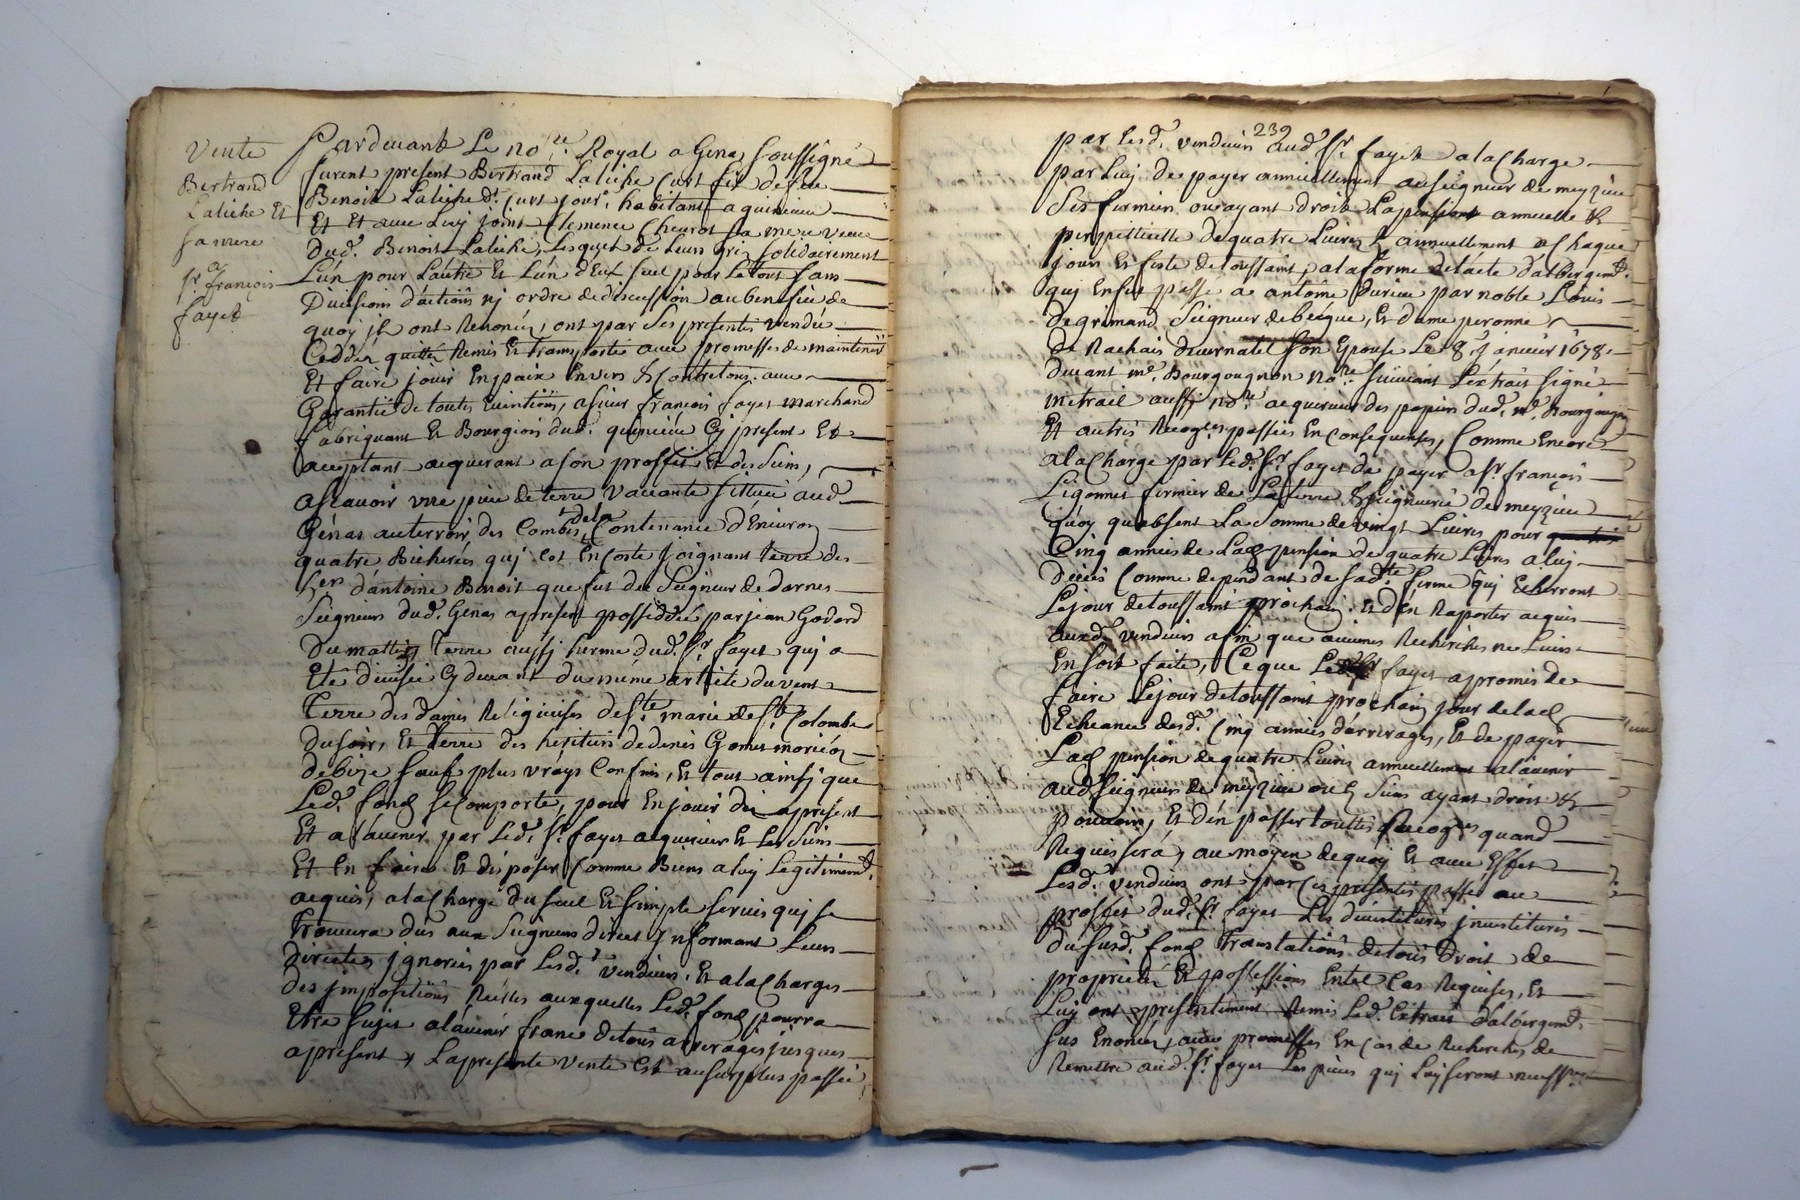 Vente
Bertrand
Laliche Et
sa mere
a
sr. françois
fayet
Pardevant Le nore. Royal a Genas soussigné
furent present Bertrand Laliche Curt fis de feu
Benoit Laliche dt. Curt jour. habitant a quincieu
Et Et avec Luy joint Clemence Cheurot sa mere veuve
dud. Benoit Laliche, Lesquels de Leurs gres solidairement
L'un pour L'autre Et L'un d'Eux seul pour Le tout sans
Division d'actions nj ordre de discussion au benefice de
quoy jls ont Renoncés, ont par Ses presentes vendu
Cedder quitter Remis Et transporté avec promesses de maintenir
Et faire jouir En paix Envers & Contre tous avec
Garantie de toutes Evintions, a sieur françois fayet marchand
fabriquant Et Bourgeois dud. quincieu Cy present Et
acceptant acquerant a son proffit Et des Siens,
ascavoir une piece de terre vacante scittuée aud.
Génas au terroir des Combes, de la Contenance d'Environ
quatre Bicherées quj est En Coste joignant terre des
hers d'antoine Benoit que fut du Seigneur de dornes
Seigneur dud. Genas apresent possedée par jean Godard
Du mattin, terre aussj surme dud. Sr. fayet quj a
Eté divisée Cy devant du même article du vent
Terre des dames Religieuses de Ste. marie de Ste. Colombe
Du soir, Et terre des heritiers de denis Gonet moricoz
de bize sauf plus vrays Confins, Et tout ainsj que
Led. fond se Comporte, pour En jouir dez apresent
Et a L'avenir par Led. Sr. fayet acquereur Et Les Siens
Et En faire Et disposer Comme Biens a luy Legitimemt.
acquis, a la Charge du seul Et simple servis quj se
trouvera dus aux Seigneurs directs Informant Leurs
directes jgnorées par Lesd. vendeurs, Et a la Charges
des jmpositions Réelles auxquelles Led. fond pourra
Etre sujet a L'avenir franc de tous arrerages jusques
apresent, La presente vente Est au surplus passée
239
par Lesd. vendeurs aud. Sr. fayet a la Charge
par Luy de payer annuellement au Seigneur de meyzieu
Ses fermiers ou ayant droit La pension annuelle &
perpettuelle de quatre Livres & annuellement a Chaque
jours Et feste de toussaint, a la forme de L'acte d'albergemt.
quj En fut passé a antoine Durieu par noble Loüis
de gramand Seigneur de bécgue, Et dame peronne
de Rachais Duvernatel Son Epouse Le 8e. janvier 1678
devant me. Bourgougnon nore. suivant L'extrait signé
metrail aussj nore. acquereur des papiers dud. me. Bourgougnon
Et autres Recoges. passées En Consequences, Comme Encore
a la Charge par Led. Sr. fayet de payer a Sr. françois
Ligonnet fermier de La terre & seigneurie de meyzieu
quoy qu'absent La Somme de vingt Livres pour
Cinq années de Lad. pension de quatre Livres a luj
deües Comme dependant de Sad.te ferme quj Echerront
Le jour de toussaint prochain, Et d'En Raporter acquis
auxd. vendeurs afin que aucunes Recherches ne Leurs
En soit faite, Ce que Led. Sr fayet a promis de
faire Le jour de toussaint prochain jour de Lad.
Echeance desd. Cinq années d'arrerages, Et de payer
Lad. pension de quatre Livres annuellement a L'avenir
aud. Seigneur de meyzieu ou Siens ayant droit &
pouvoir, Et d'en passer touttes Recoges. quand
Requis Sera, au moyen de quoy Et avec Effet
Lesd. vendeurs ont par Ces presentes passées au
proffit dud. Sr fayet Les devestitures jnvestitures
du susd. fond translations de tous Droit de
proprietés Et possessions En tel Cas Requises, Et
Luy ont presentement Remis Led. Extrait d'albergemt.
sus Enoncé, avec promesses En Cas de Recherches de
Remettre aud. Sr fayet Les pieces quj Luy seront necessres.